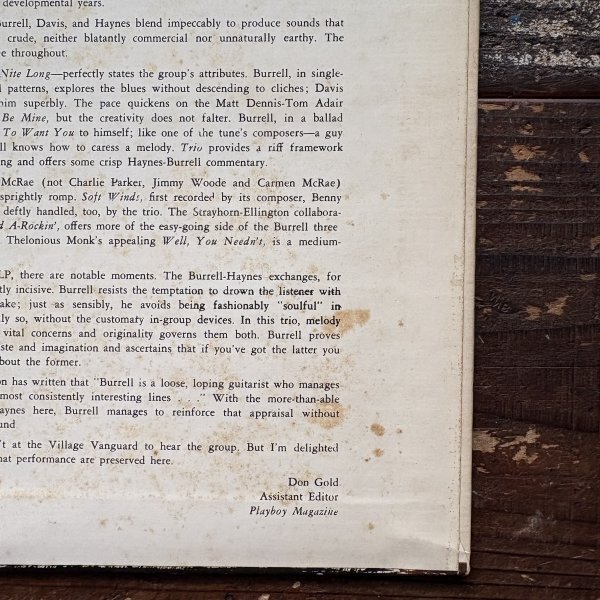 developmental years.
Burrell, Davis, and Haynes blend impeccably to produce sounds that
crude, neither blatantly commercial nor unnaturally earthy. The
throughout.
Nite Long—perfectly states the group's attributes. Burrell, in single-
patterns, explores the blues without descending to cliches; Davis
him superbly. The pace quickens on the Matt Dennis-Tom Adair
Be Mine, but the creativity does not falter. Burrell, in a ballad
To Want You to himself; like one of the tune's composers—a guy
knows how to caress a melody. Trio provides a riff framework
and offers some crisp Haynes-Burrell commentary.
McRae (not Charlie Parker, Jimmy Woode and Carmen McRae)
sprightly romp. Soft Winds, first recorded by its composer, Benny
deftly handled, too, by the trio. The Strayhorn-Ellington collabora-
A-Rockin', offers more of the easy-going side of the Burrell three
Thelonious Monk's appealing Well, You Needn't, is a medium-
LP, there are notable moments. The Burrell-Haynes exchanges, for
incisive. Burrell resists the temptation to drown the listener with
just as sensibly, he avoids being fashionably "soulful" in
so, without the customary in-group devices. In this trio, melody
vital concerns and originality governs them both. Burrell proves
and imagination and ascertains that if you've got the latter you
the former.
has written that "Burrell is a loose, loping guitarist who manages
most consistently interesting lines . . ." With the more-than-able
here, Burrell manages to reinforce that appraisal without
at the Village Vanguard to hear the group. But I'm delighted
that performance are preserved here.
Don Gold
Assistant Editor
Playboy Magazine